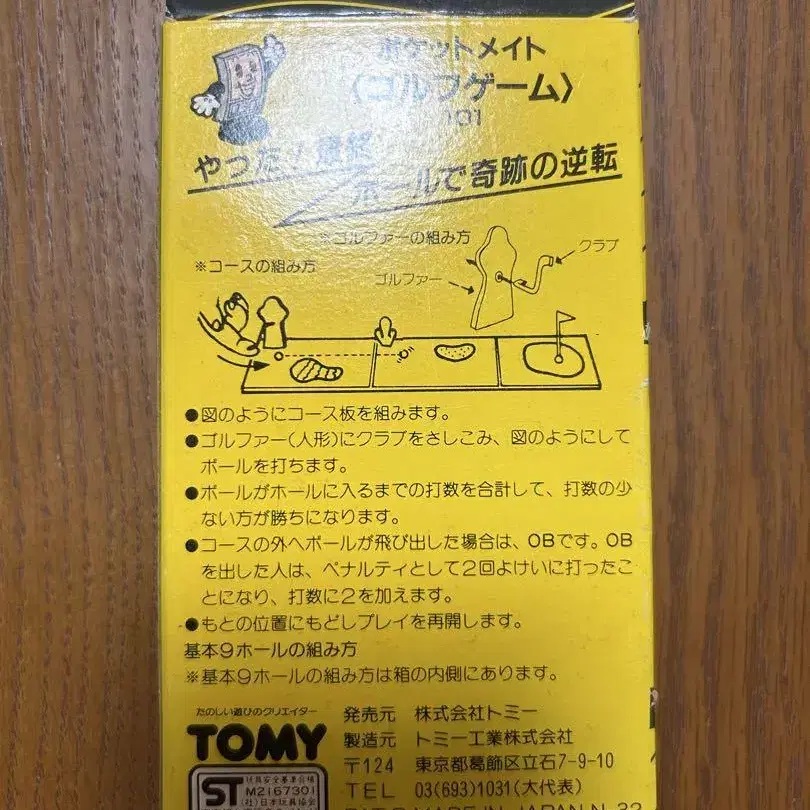 ポケットメイト
〈ゴルフゲーム〉
101
やった!最終
ホールで奇跡の逆転
※ゴルファーの組み方
クラブ
※コースの組み方
ゴルファー
●図のようにコース板を組みます。
●ゴルファー(人形)にクラブをさしこみ、図のようにして
ボールを打ちます。
●ボールがホールに入るまでの打数を合計して、打数の少
ない方が勝ちになります。
●コースの外へボールが飛び出した場合は、OBです。OB
を出した人は、ペナルティとして2回よけいに打ったこ
とになり、打数に2を加えます。
●もとの位置にもどしプレイを再開します。
基本9ホールの組み方
※基本9ホールの組み方は箱の内側にあります。
たのしい遊びのクリエイター
TOMY
発売元 株式会社トミー
製造元 トミー工業株式会社
〒124 東京都葛飾区立石7-9-10
TEL 03(693)1031(大代表)
ST
玩具安全基準合格
M2167301
(社)日本玩具協会
MADE IN JAPAN